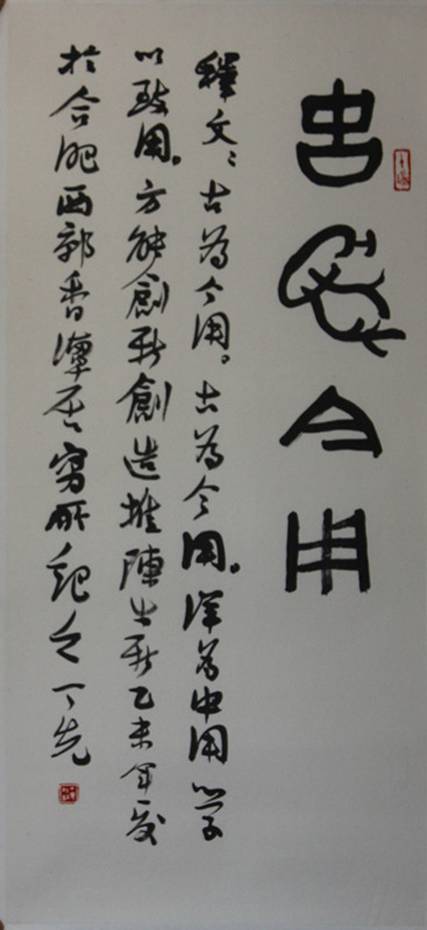 古為今用
釋文：古為今用。古為今用。洋為中用学
以致用。方能創新創造推陳出新乙未年夏
於合肥西郭香潭居記之丁先